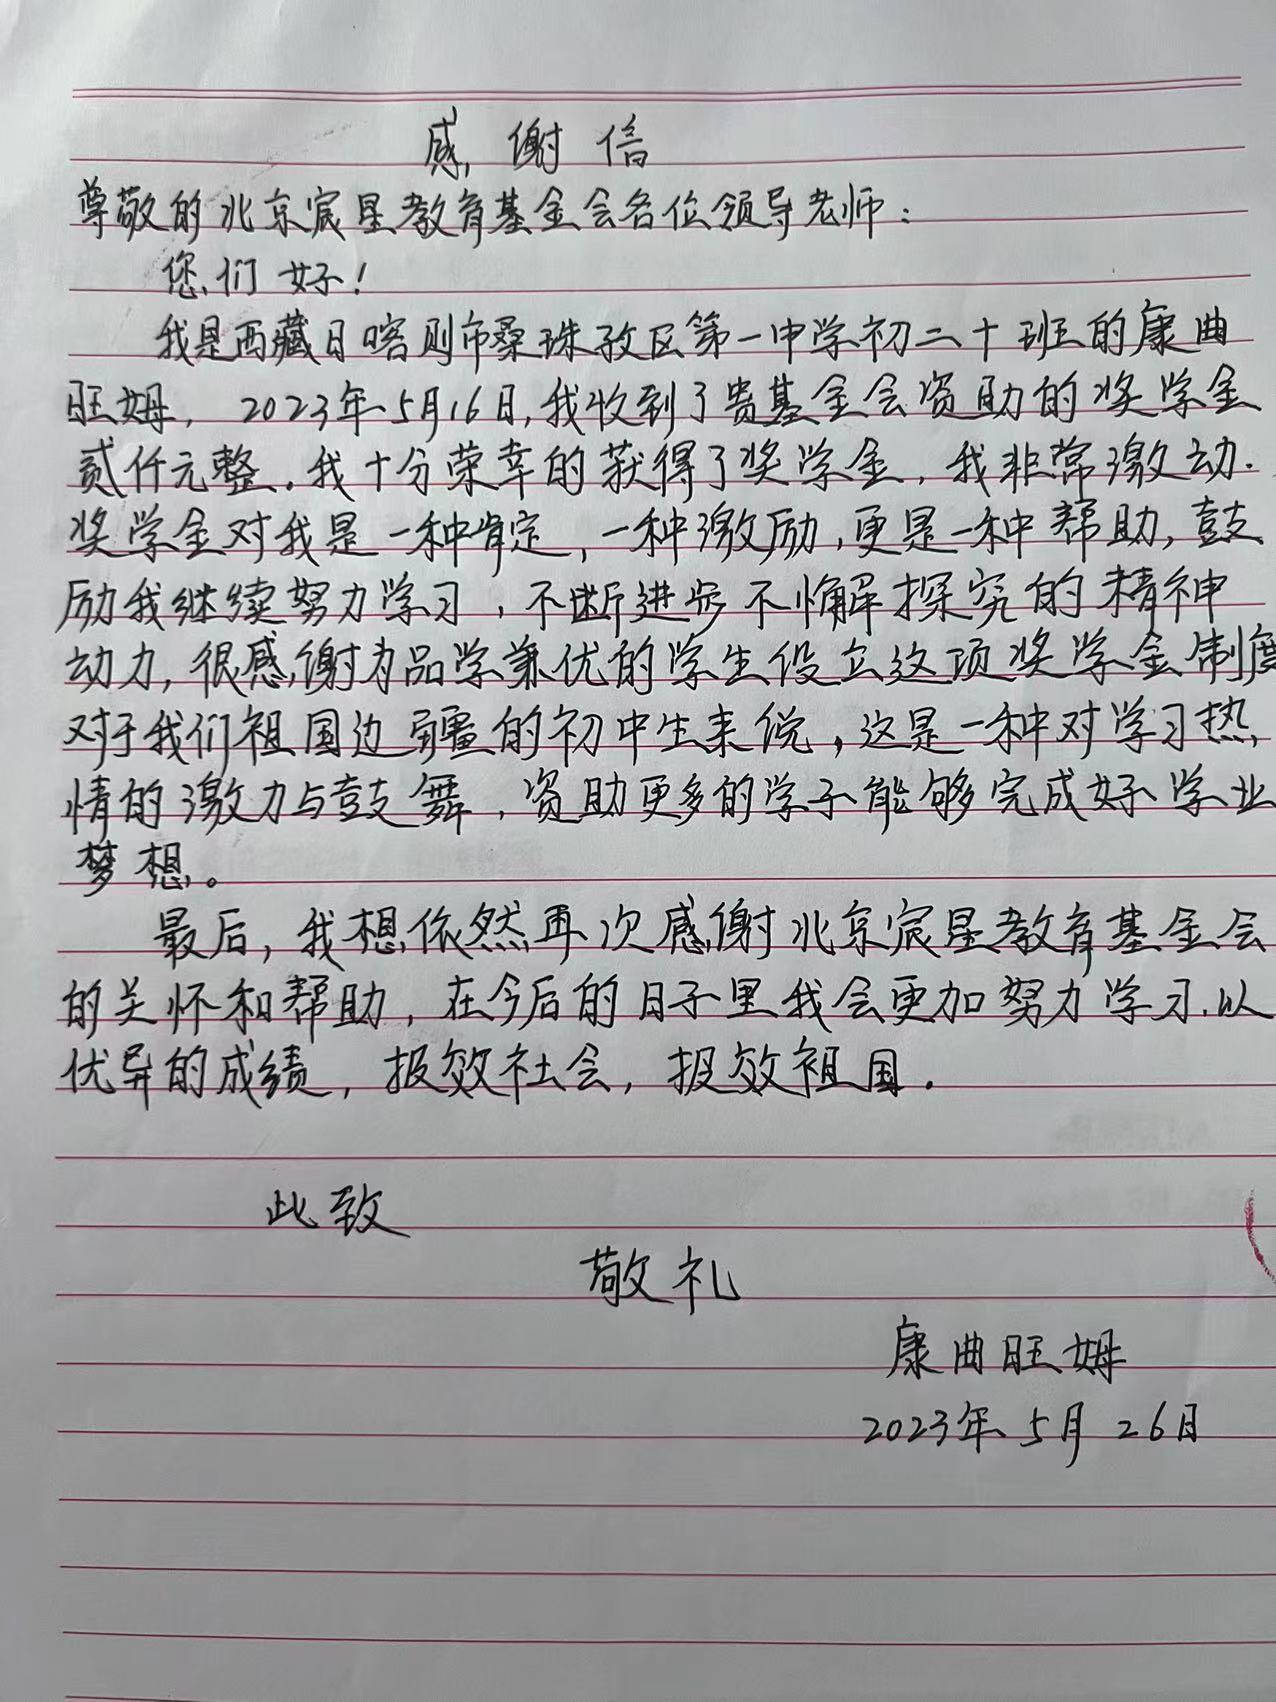 感谢信
尊敬的北京宸星教育基金会各位领导老师：
您们好！
我是西藏日喀则市桑珠孜区第一中学初二十班的康曲
旺姆，2023年5月16日，我收到了贵基金会资助的奖学金
贰仟元整。我十分荣幸的获得了奖学金，我非常激动.
奖学金对我是一种肯定，一种激励，更是一种帮助，鼓
励我继续努力学习，不断进步不懈探究的精神
动力，很感谢为品学兼优的学生设立这项奖学金制度
对于我们祖国边疆的初中生来说，这是一种对学习热
情的激力与鼓舞，资助更多的学子能够完成好学业
梦想。
最后，我想依然再次感谢北京宸星教育基金会
的关怀和帮助，在今后的日子里我会更加努力学习.以
优异的成绩，报效社会，报效祖国.
此致
敬礼
康曲旺姆
2023年5月26日